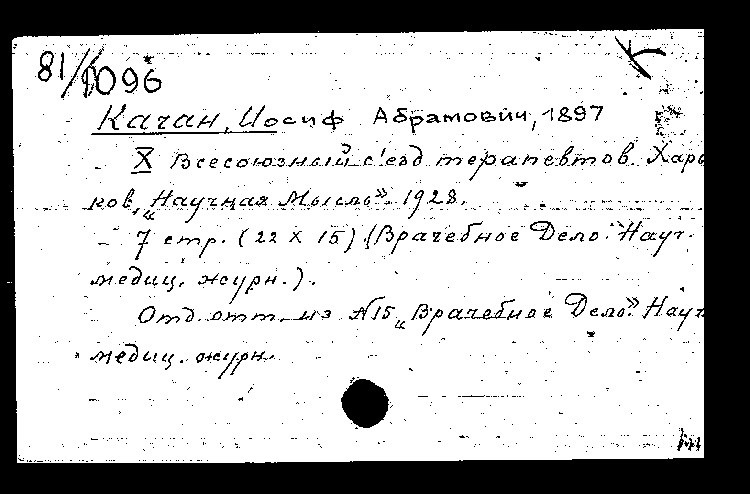 81/1096
К
Качан, Иосиф Абрамович, 1897
X Всесоюзный с'езд терапевтов. Харь
ков, „Научная Мысль". 1928.
7 стр. (22 x 15) (Врачебное Дело." Науч.
медиц. журн.).
Отд. отт. из №15 „Врачебное Дело." Науч
медиц. журн.